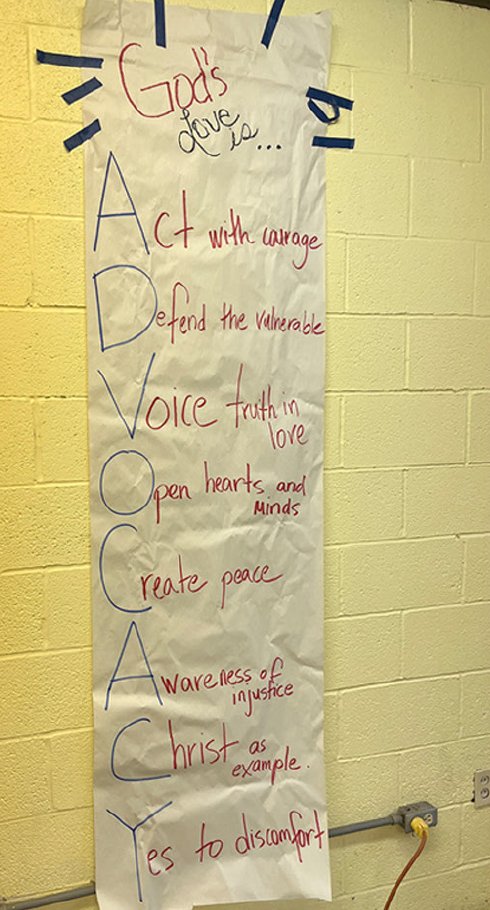 God's
Love is...
Act with courage
Defend the vulnerable
Voice truth in
love
Open hearts and
Minds
Create peace
Awareness of
injustice
Christ as
example.
Yes to discomfort